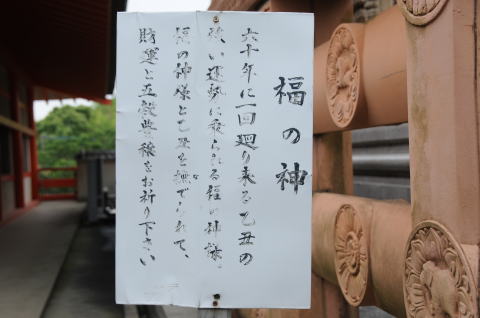 福の神
六十年に一回廻り来る乙丑の
救い運勢に乗られる福の神様。
福の神様と乙丑を撫でられて、
財運と五穀豊穣をお祈り下さい